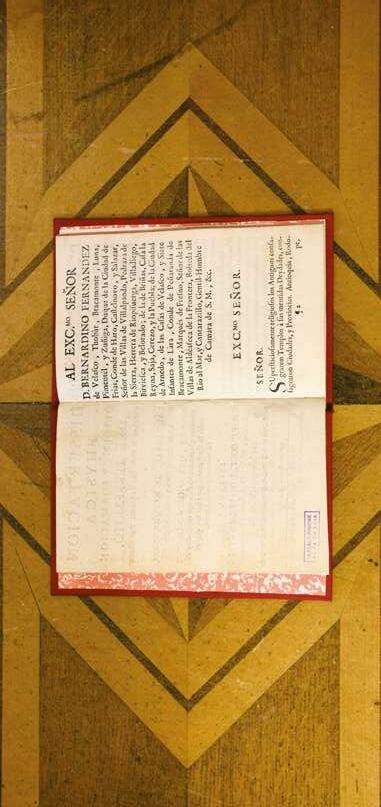 AL EXC.MO SEÑOR
D. BERNARDINO FERNANDEZ
de Velasco, Thobár, Bracamonte, Luna,
Pimentél, y Zuñiga, Duque de la Ciudad de
Frias, Conde de Haro, Castelnovo, y Salazar,
Señor de las Villas de Villalpando, Pedraza de
la Sierra, Herrera de Riopisuerga, Villadiego,
Birviesca, y Belorado, de la de Briñas, Casa la
Reyna, Saja, Cerezo, y la Puebla, de la Ciudad
de Arnedo, de las Casas de Velasco, y Siete
Infantes de Lara, Conde de Peñaranda de
Bracamonte, Marqués de Fresno, Señor de las
Villas de Aldeaseca de la Frontera, Bobeda del
Rio al Mar, y Cantarazillo, Gentil-Hombre
de Camara de S. M., &c.
EXC.MO SEÑOR.
SEÑOR.
SUpersticiosamente religiosos los Antiguos consa-
graron Templos à sus mentidas Deydades, con-
sagraron Ciudades, y Provincias. Antioquia, Rodo-
¶ 2
pe,